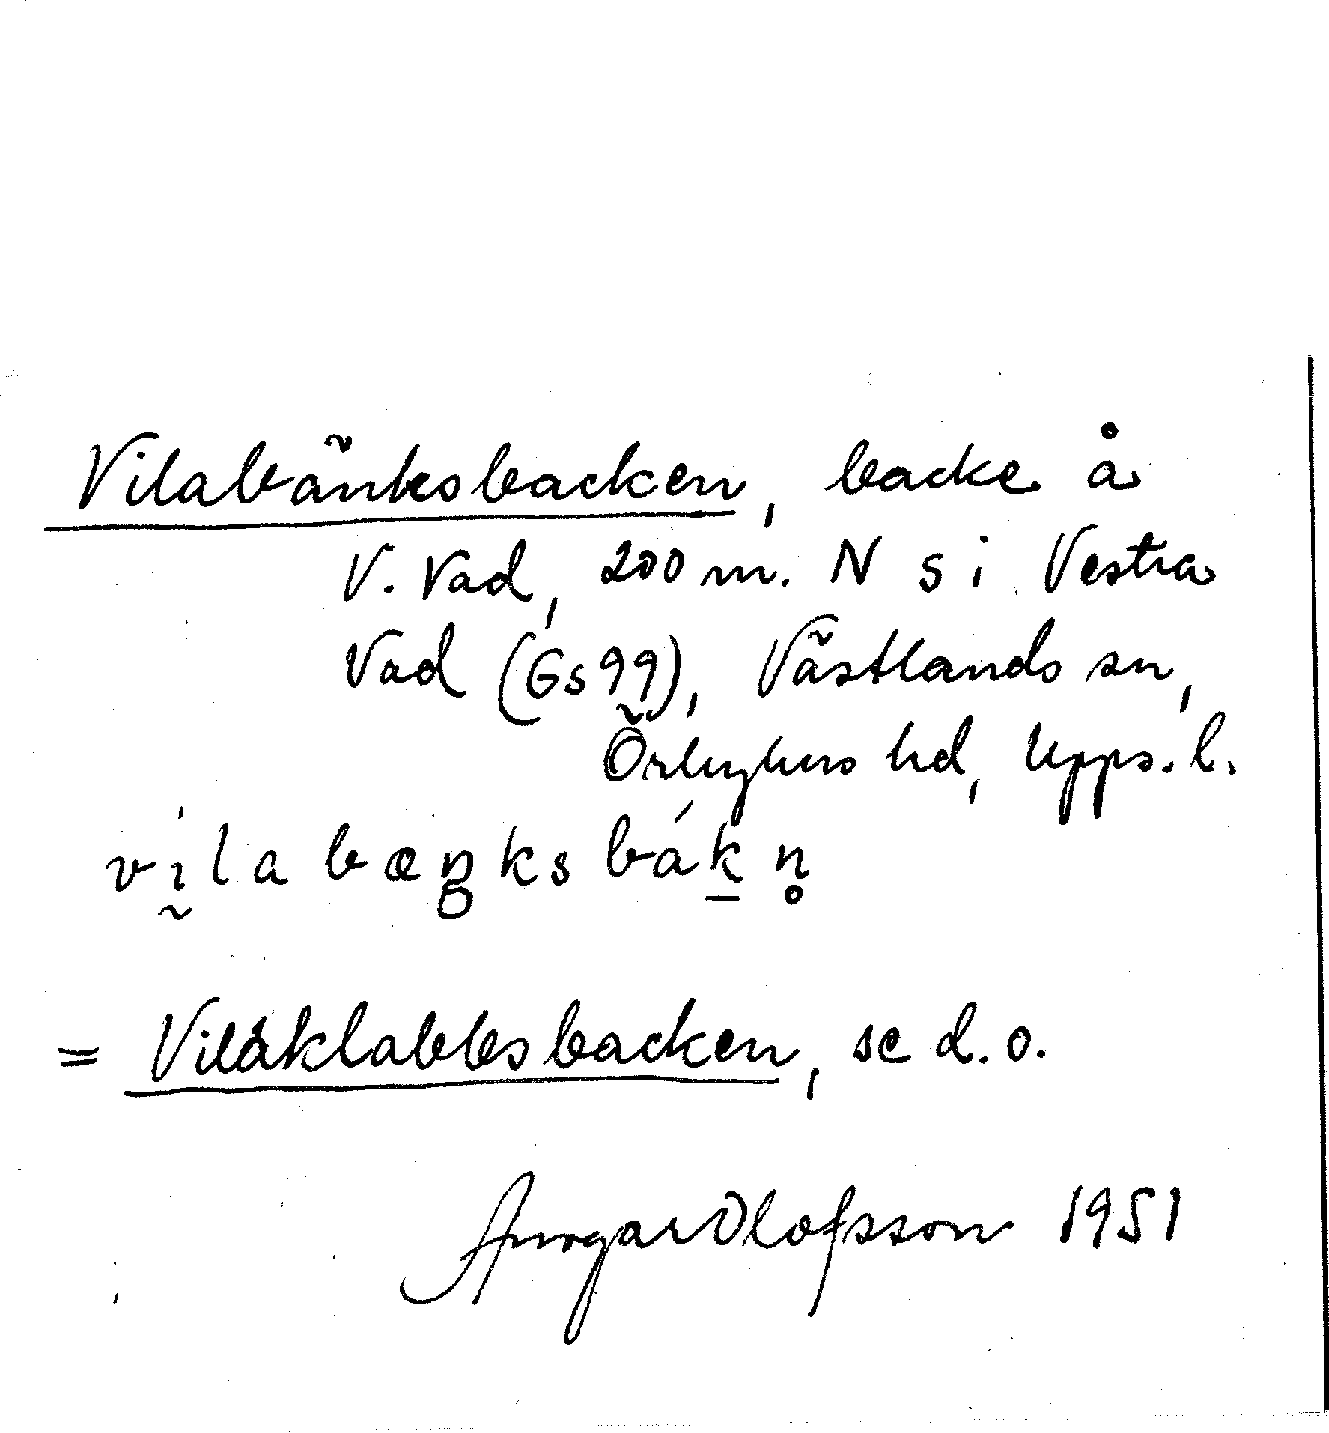 Vilabänksbacken, backe å
V. Vad, 200 m. N s i Vestra
Vad (Gs 99), Västlands sn,
Örbyhus hd, Upps. l.
vila bæŋks bákn̥
= Vilaklabbsbacken, se d. o.
Ansgar Olofsson 1951